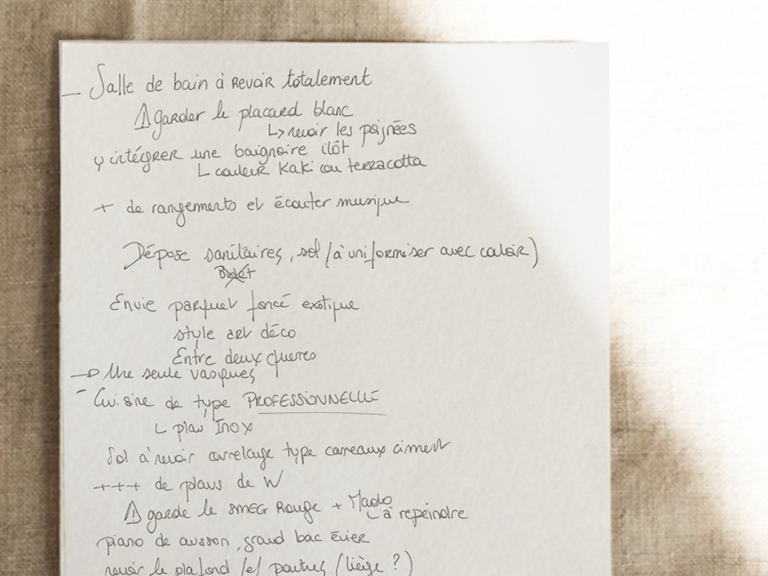 - Salle de bain à REVOIR totalement
⚠ garder le placard blanc
↳ revoir les poignées
↳ intégrer une baignoire ilôt
↳ couleur Kaki ou terracotta
+ de rangements et écouter musique
Dépose sanitaires, sol (à uniformiser avec couloir)
Bidet
Envie parquet foncé exotique
style art déco
Entre deux guerres
→ Une seule vasques
- Cuisine de type PROFESSIONNELLE
↳ plan INOX
Sol à revoir carrelage type carreaux ciment
+++ de plans de W
⚠ garde le SMEG Rouge + Mado
↳ à repeindre
piano de cuisson, grand bac évier
revoir le plafond (et poutres (liège ?)